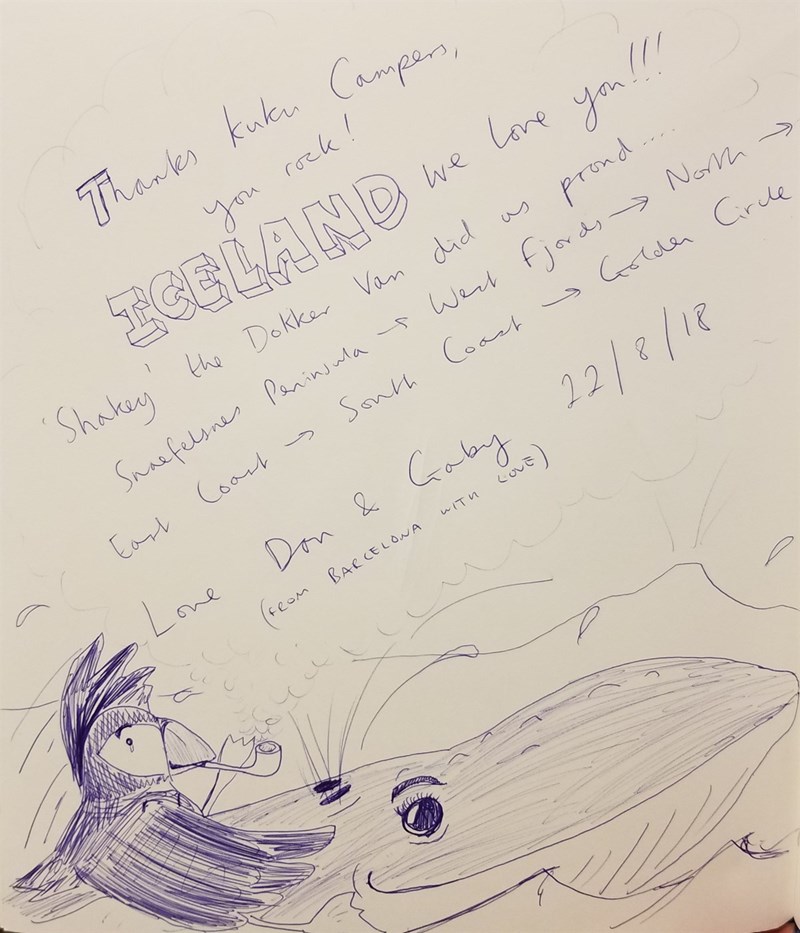 Thanks Kuku Campers,
you rock!
ICELAND we love you!!!
'Shakey' the Dokker Van did us proud....
Snaefelsnes Peninsula → West Fjords → North →
East Coast → South Coast → Golden Circle
Love Dan & Gaby 22/8/18
(FROM BARCELONA WITH LOVE)